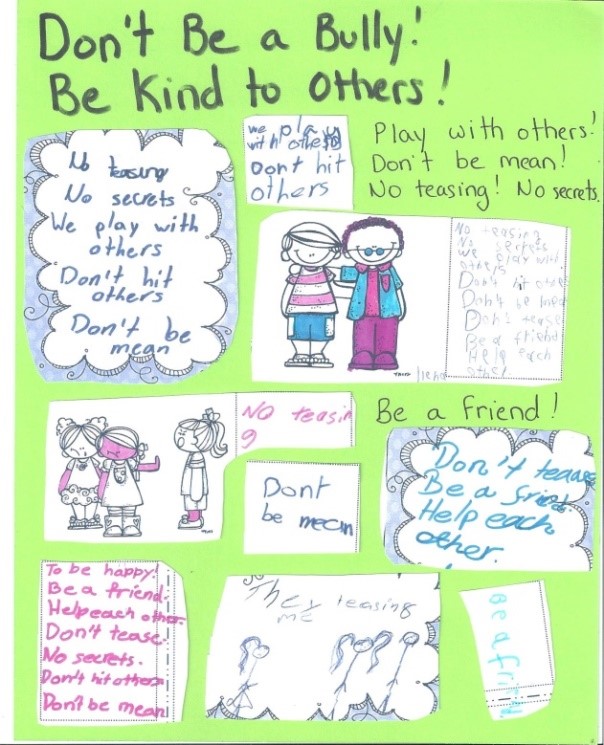 Don't Be a Bully!
Be Kind to Others!
No teasing
No secrets
We play with
others
Don't hit
others
Don't be
mean
we play
with others
Dont hit
others
Play with others!
Don't be mean!
No teasing! No secrets.
No teasing
No
we play with
others
Don't hit
Don't be
Don't tease
Be a friend
Help each
other
NO teasin
g
Be a Friend!
Dont
be mean
Don't tease
Be a friend.
Help each
other.
To be happy!
Be a friend.
Help each other.
Don't tease.
No secrets.
Don't hit others
Don't be mean!
They teasing
me
Be a friend.